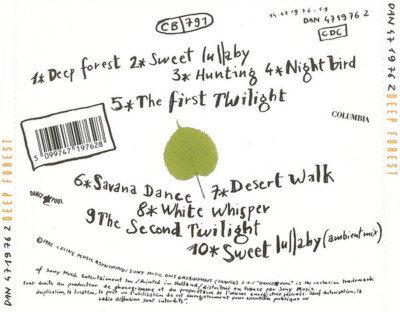 CB 791
14-471976-11
DAN 471976 2
CDC
1* Deep forest 2* Sweet lullaby
3* Hunting 4* Night bird
5* The First Twilight
COLUMBIA
5 099747 197628
DANCE POOL
6* Savana Dance 7* Desert Walk
8* White Whisper
9 The Second Twilight
10* Sweet lullaby (ambient mix)
of Sony Music Entertainment Inc / Printed in Holland / distribution en France par Sony Music
Tout droits du producteur de phonogrammes et du propriétaire de l'œuvre enregistrée réservés. Sauf autorisation, la
duplication, la location, le prêt ou l'utilisation de cet enregistrement pour exécution publique ou
radio diffusion sont interdits
DAN 471976 2 DEEP FOREST
DAN 471976 2 DEEP FOREST